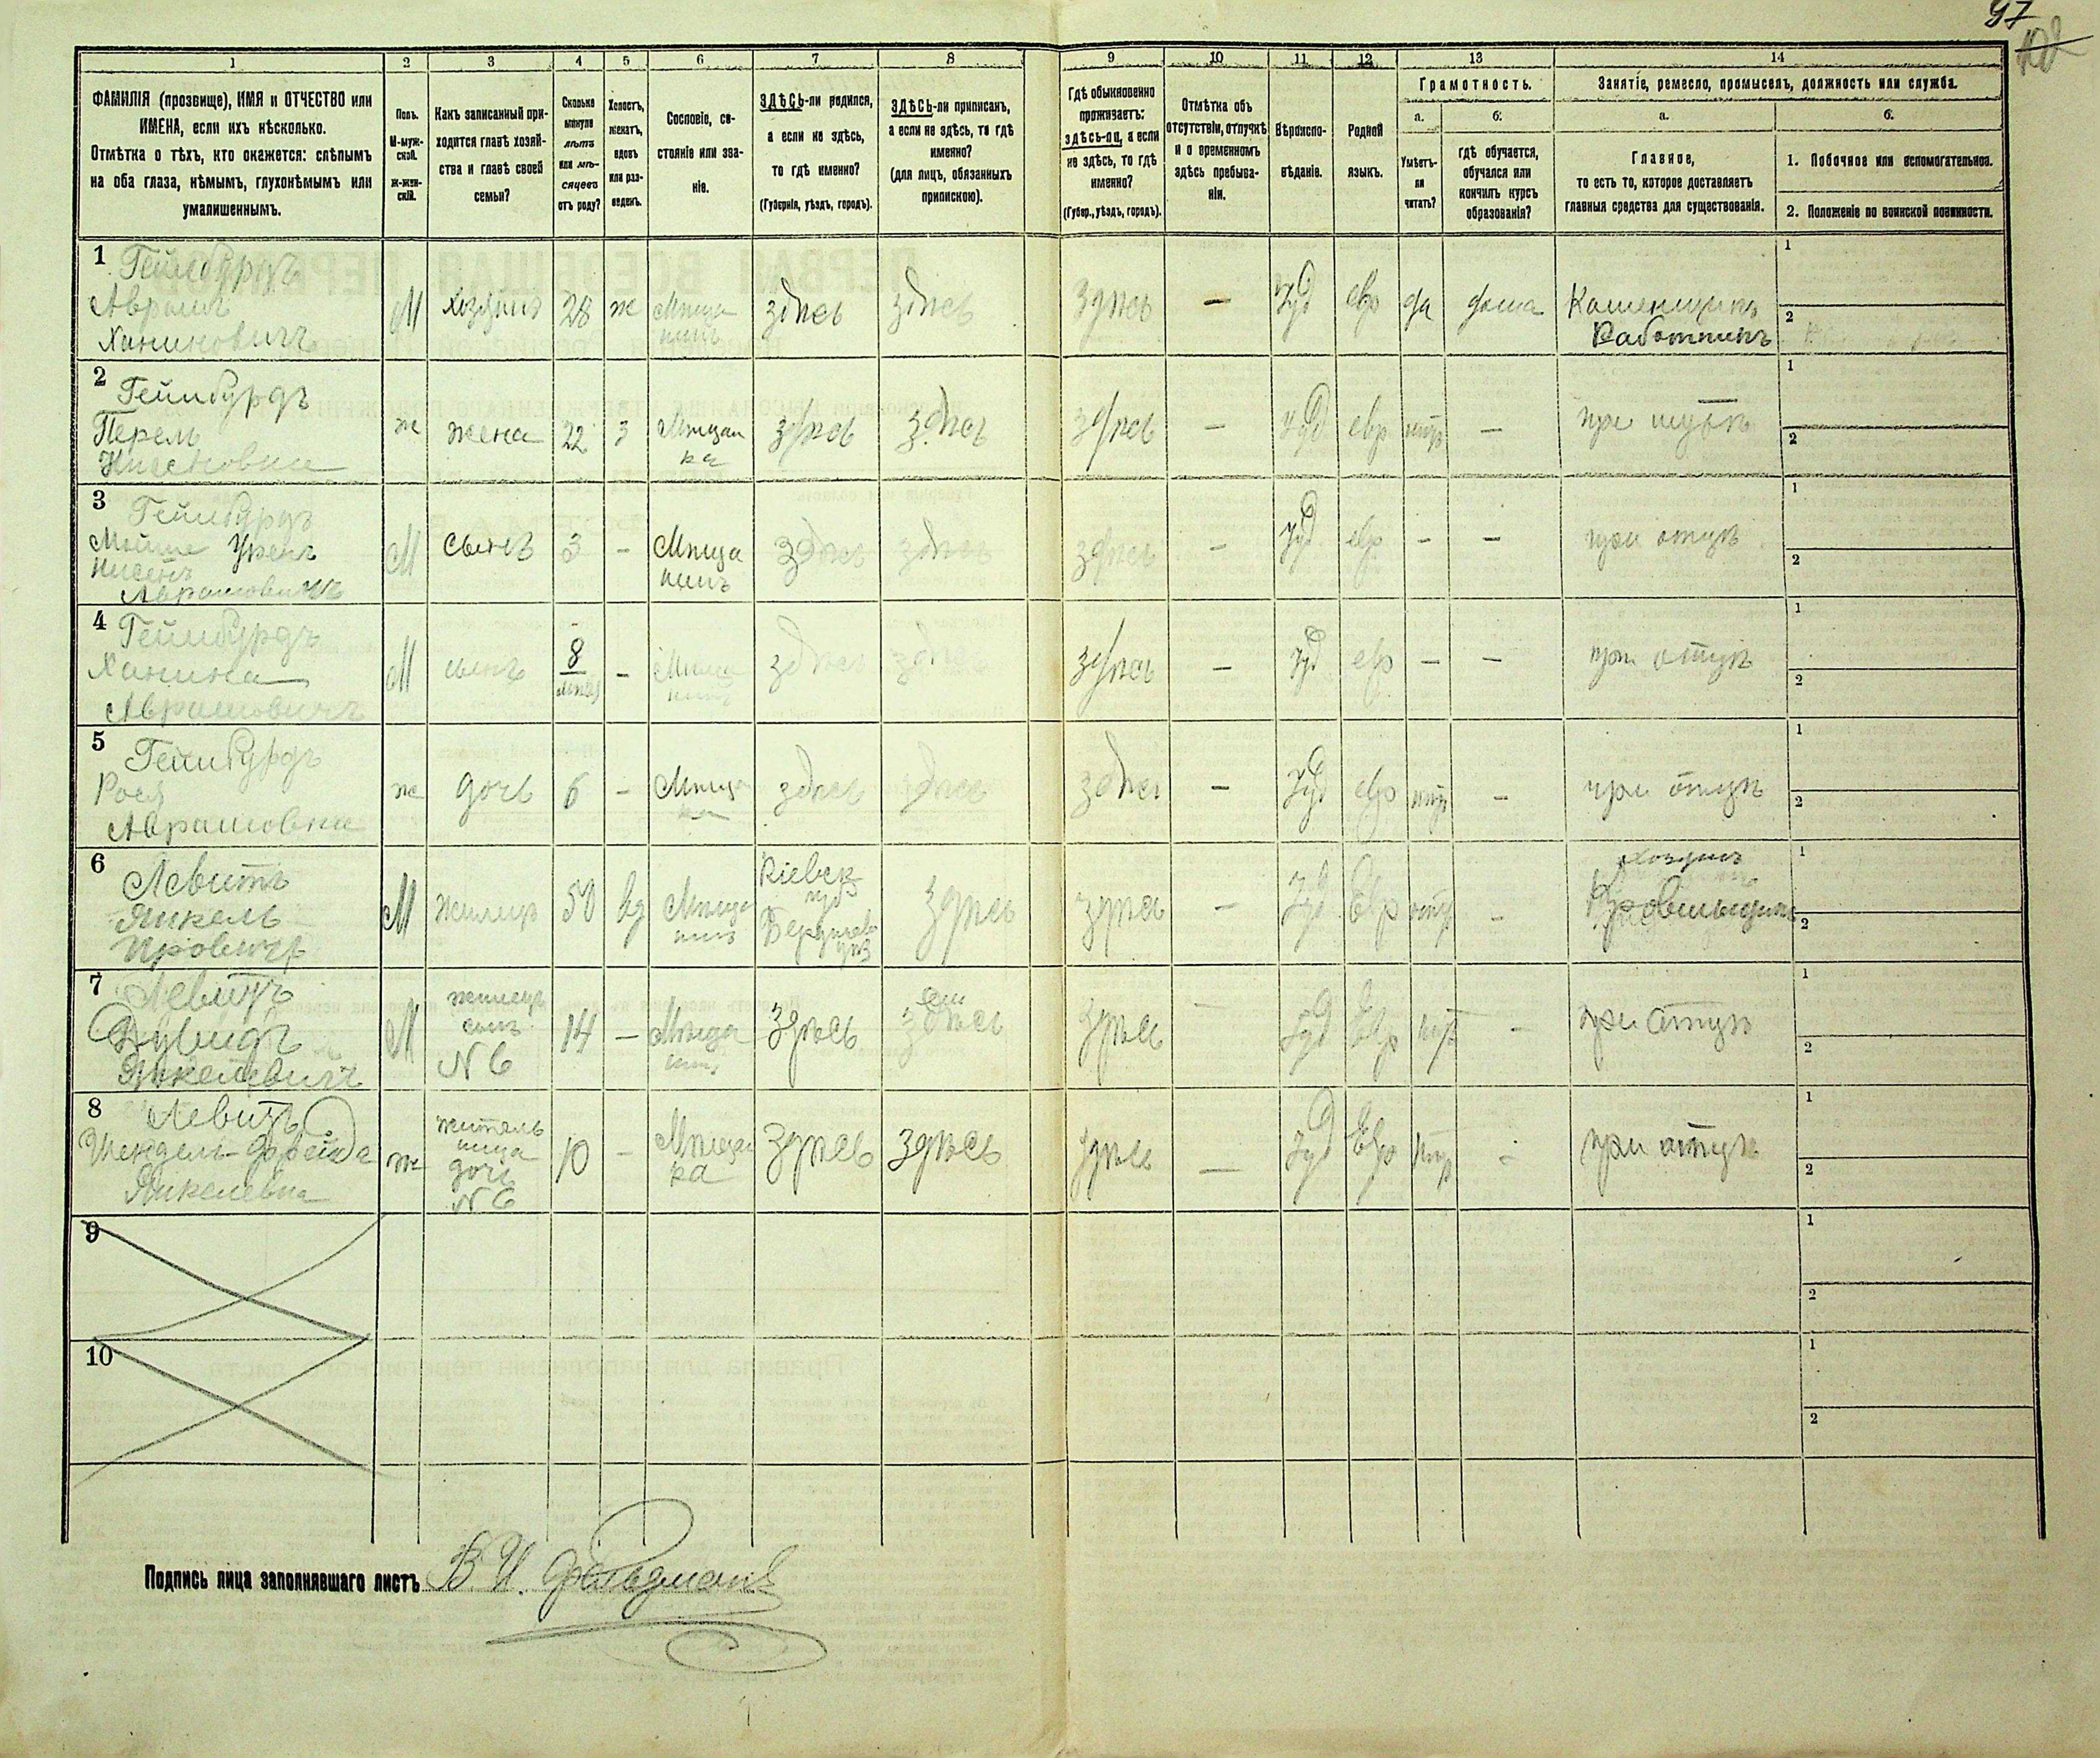 97
1 2 3 4 5 6 7 8 9 10 11 12 13 14
ФАМИЛІЯ (прозвище), ИМЯ и ОТЧЕСТВО или
ИМЕНА, если ихъ нѣсколько.
Отмѣтка о тѣхъ, кто окажется: слѣпымъ
на оба глаза, нѣмымъ, глухонѣмымъ или
умалишеннымъ.
Полъ.
М-муж-
ской.
ж-жен-
скій.
Какъ записанный при-
ходится главѣ хозяй-
ства и главѣ своей
семьи?
Сколько
минуло
лѣтъ
или мѣ-
сяцевъ
отъ роду?
Холостъ,
женатъ,
вдовъ
или раз-
веденъ.
Сословіе, со-
стояніе или зва-
ніе.
ЗДѢСЬ-ли родился,
а если не здѣсь,
то гдѣ именно?
(Губернія, уѣздъ, городъ).
ЗДѢСЬ-ли приписанъ,
а если не здѣсь, то гдѣ
именно?
(для лицъ, обязанныхъ
припискою).
Гдѣ обыкновенно
проживаетъ:
здѣсь-ли, а если
не здѣсь, то гдѣ
именно?
(Губер., уѣздъ, городъ).
Отмѣтка объ
отсутствіи, отлучкѣ
и о временномъ
здѣсь пребыва-
ніи.
Вѣроиспо-
вѣданіе.
Родной
языкъ.
Грамотность.
а.
Умѣетъ-
ли
читать?
б.
гдѣ обучается,
обучался или
кончилъ курсъ
образованія?
Занятіе, ремесло, промыселъ, должность или служба.
а.
Главное,
то есть то, которое доставляетъ
главныя средства для существованія.
б.
1. Побочное или вспомогательное.
2. Положеніе по воинской повинности.
1 Геймбурдъ
Аврамъ
Ханиновичъ
М хозяинъ 28 ж Мѣща
нинъ
здѣсь здѣсь здѣсь — Iуд евр да дома Каменщикъ
Работникъ
1
2
2 Геймбурдъ
Перель
Нисеновна
ж жена 22 з Мѣщан
ка
здѣсь здѣсь здѣсь — Iуд евр нѣтъ — при мужѣ
1
2
3 Геймбурдъ
Мойше
Нисенъ
Аврамовичъ
М сынъ 3 - Мѣща
нинъ
здѣсь здѣсь здѣсь — Iуд евр - - при отцѣ
1
2
4 Геймбурдъ
Ханина
Аврамовичъ
М сынъ 8
мѣсяц
- Мѣща
нинъ
здѣсь здѣсь здѣсь — Iуд евр - - при отцѣ
1
2
5 Геймбурдъ
Рося
Аврамовна
ж дочь 6 - Мѣща
ка
здѣсь здѣсь здѣсь — Iуд евр нѣтъ - при отцѣ
1
2
6 Левитъ
Янкель
М жилецъ 50 вд Мѣща
нинъ
Кіевск
губ
Бердичев
уѣз
здѣсь здѣсь — Iуд Евр нѣтъ - хозяинъ
Кровельщикъ
1
2
7 Левитъ
Дувидъ
Янкелевичъ
М жилецъ
сынъ
N 6
14 - Мѣща
нинъ
здѣсь здѣсь здѣсь — Iуд Евр нѣтъ - при отцѣ
1
2
8 Левитъ
Янкелевна
ж житель
ница
дочь
N 6
10 - Мѣщан
ка
здѣсь здѣсь здѣсь — Iуд Евр нѣтъ - при отцѣ
1
2
9
1
2
10
1
2
Подпись лица заполнявшаго листъ В. И.